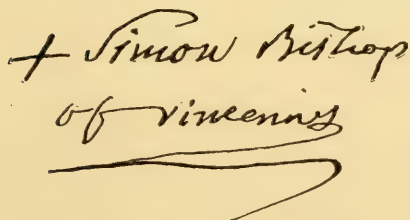 + Simon Bishop
of vincennes